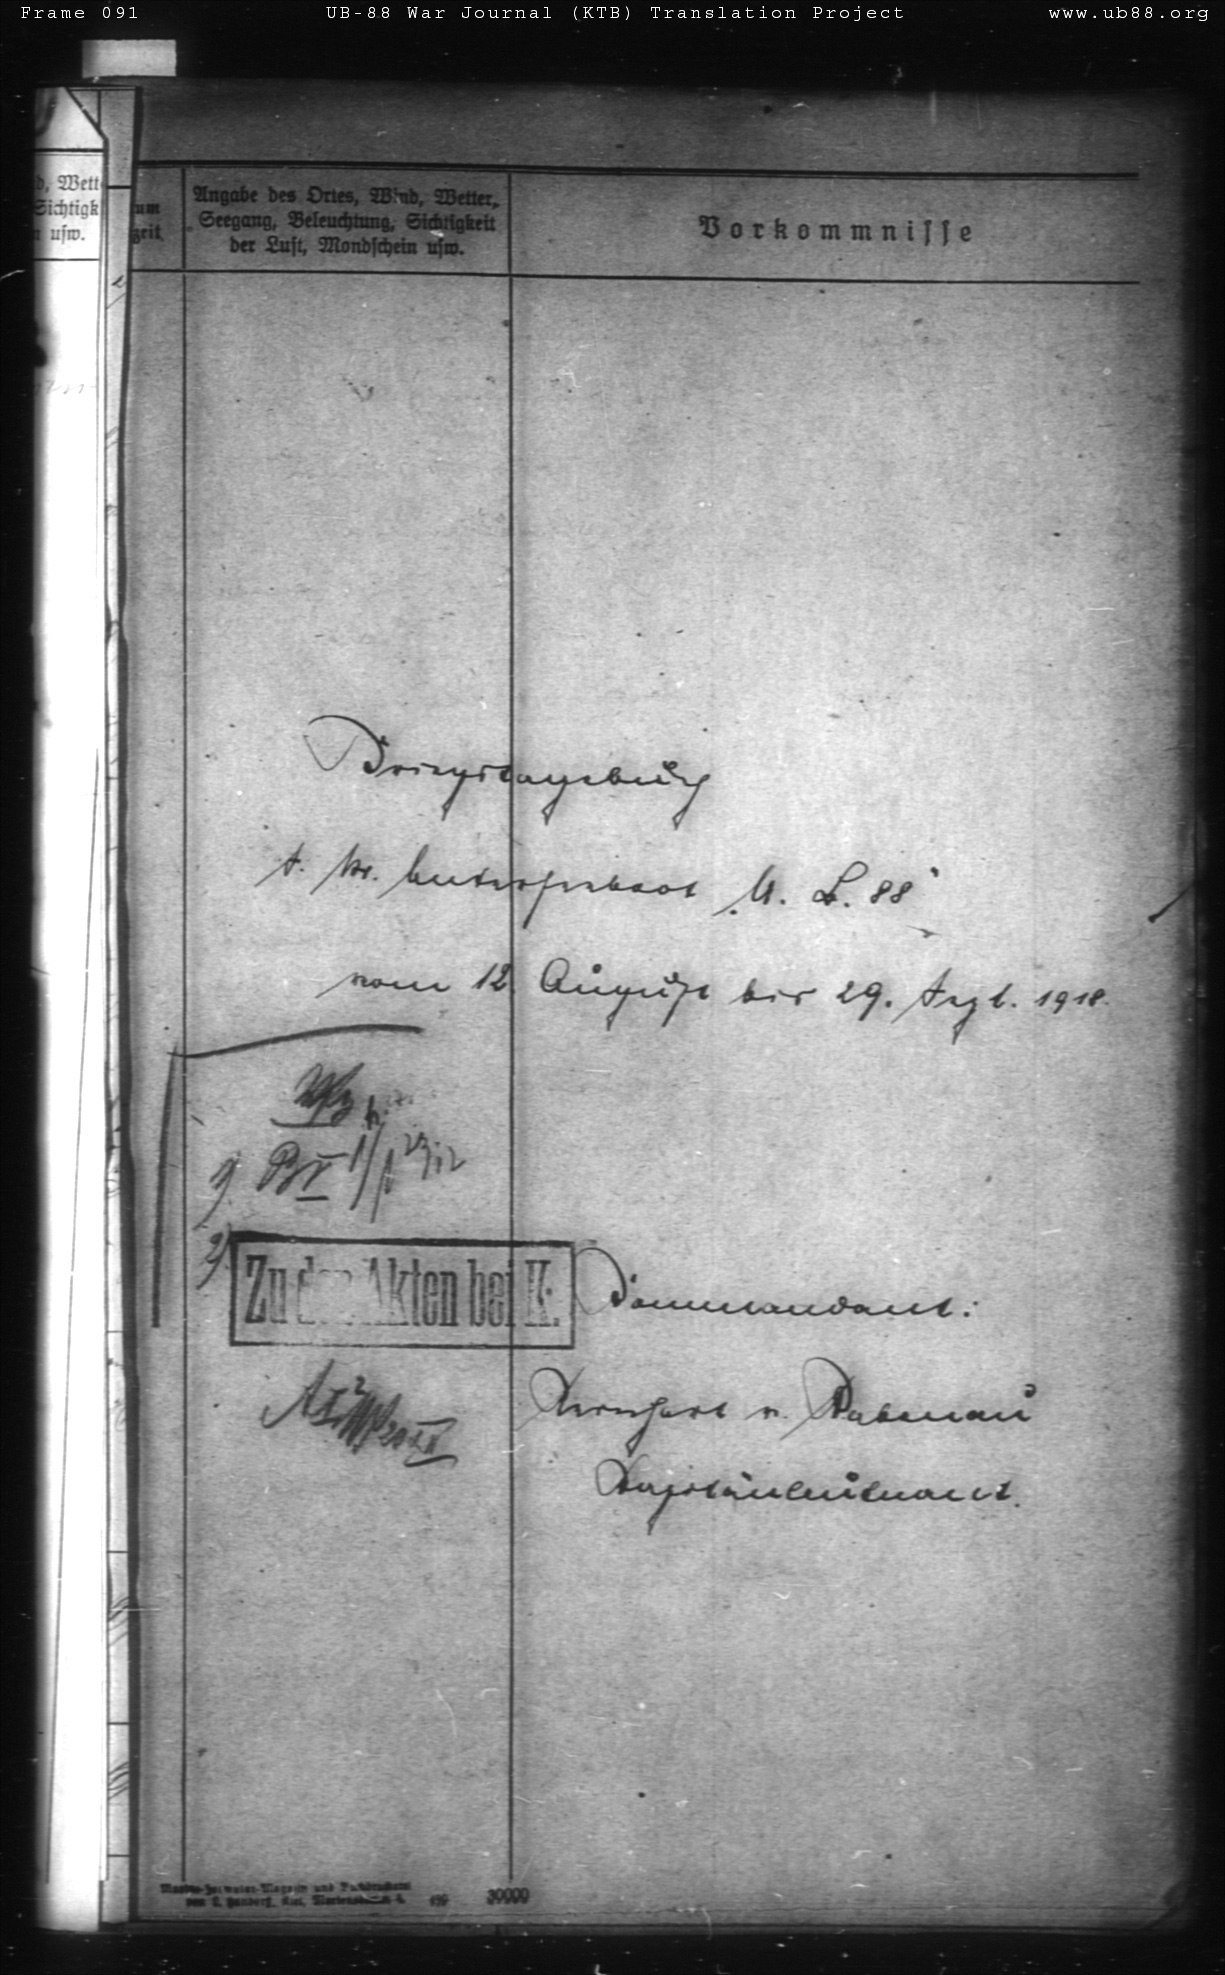 Frame 091 UB-88 War Journal (KTB) Translation Project www.ub88.org
d, Wett
Sichtigk
n usw.
um
zeit
Angabe des Ortes, Wind, Wetter,
Seegang, Beleuchtung, Sichtigkeit
der Luft, Mondschein usw.
Vorkommnisse
Kriegstagebuch
S. M. Unterseeboot „U. B. 88“
vom 12. August bis 29. Sept. 1918.
1) B V
2)
Zu den Akten bei K.
Kommandant:
Reinhart v. Rabenau
Kapitänleutnant.
30000